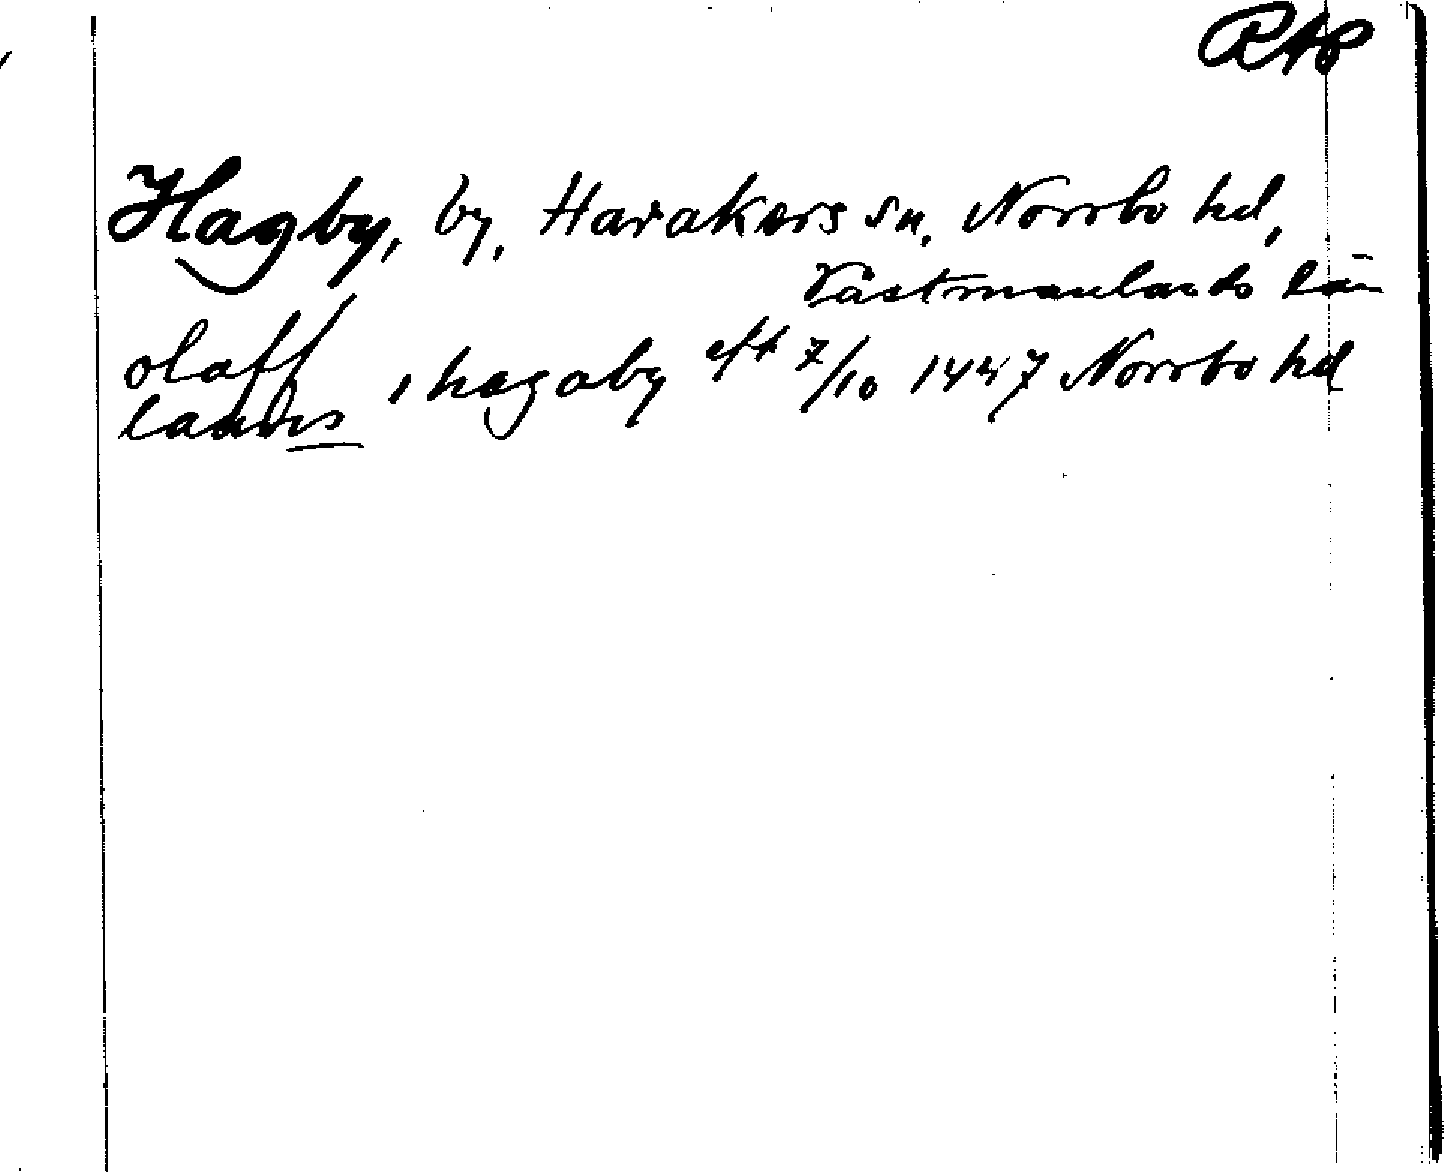 RAp
Hagby, by, Harakers sn, Norrbo hd,
Västmanlands län
olaff
laur̲s̲ i hagaby eft 7/10 1447 Norrbo hd